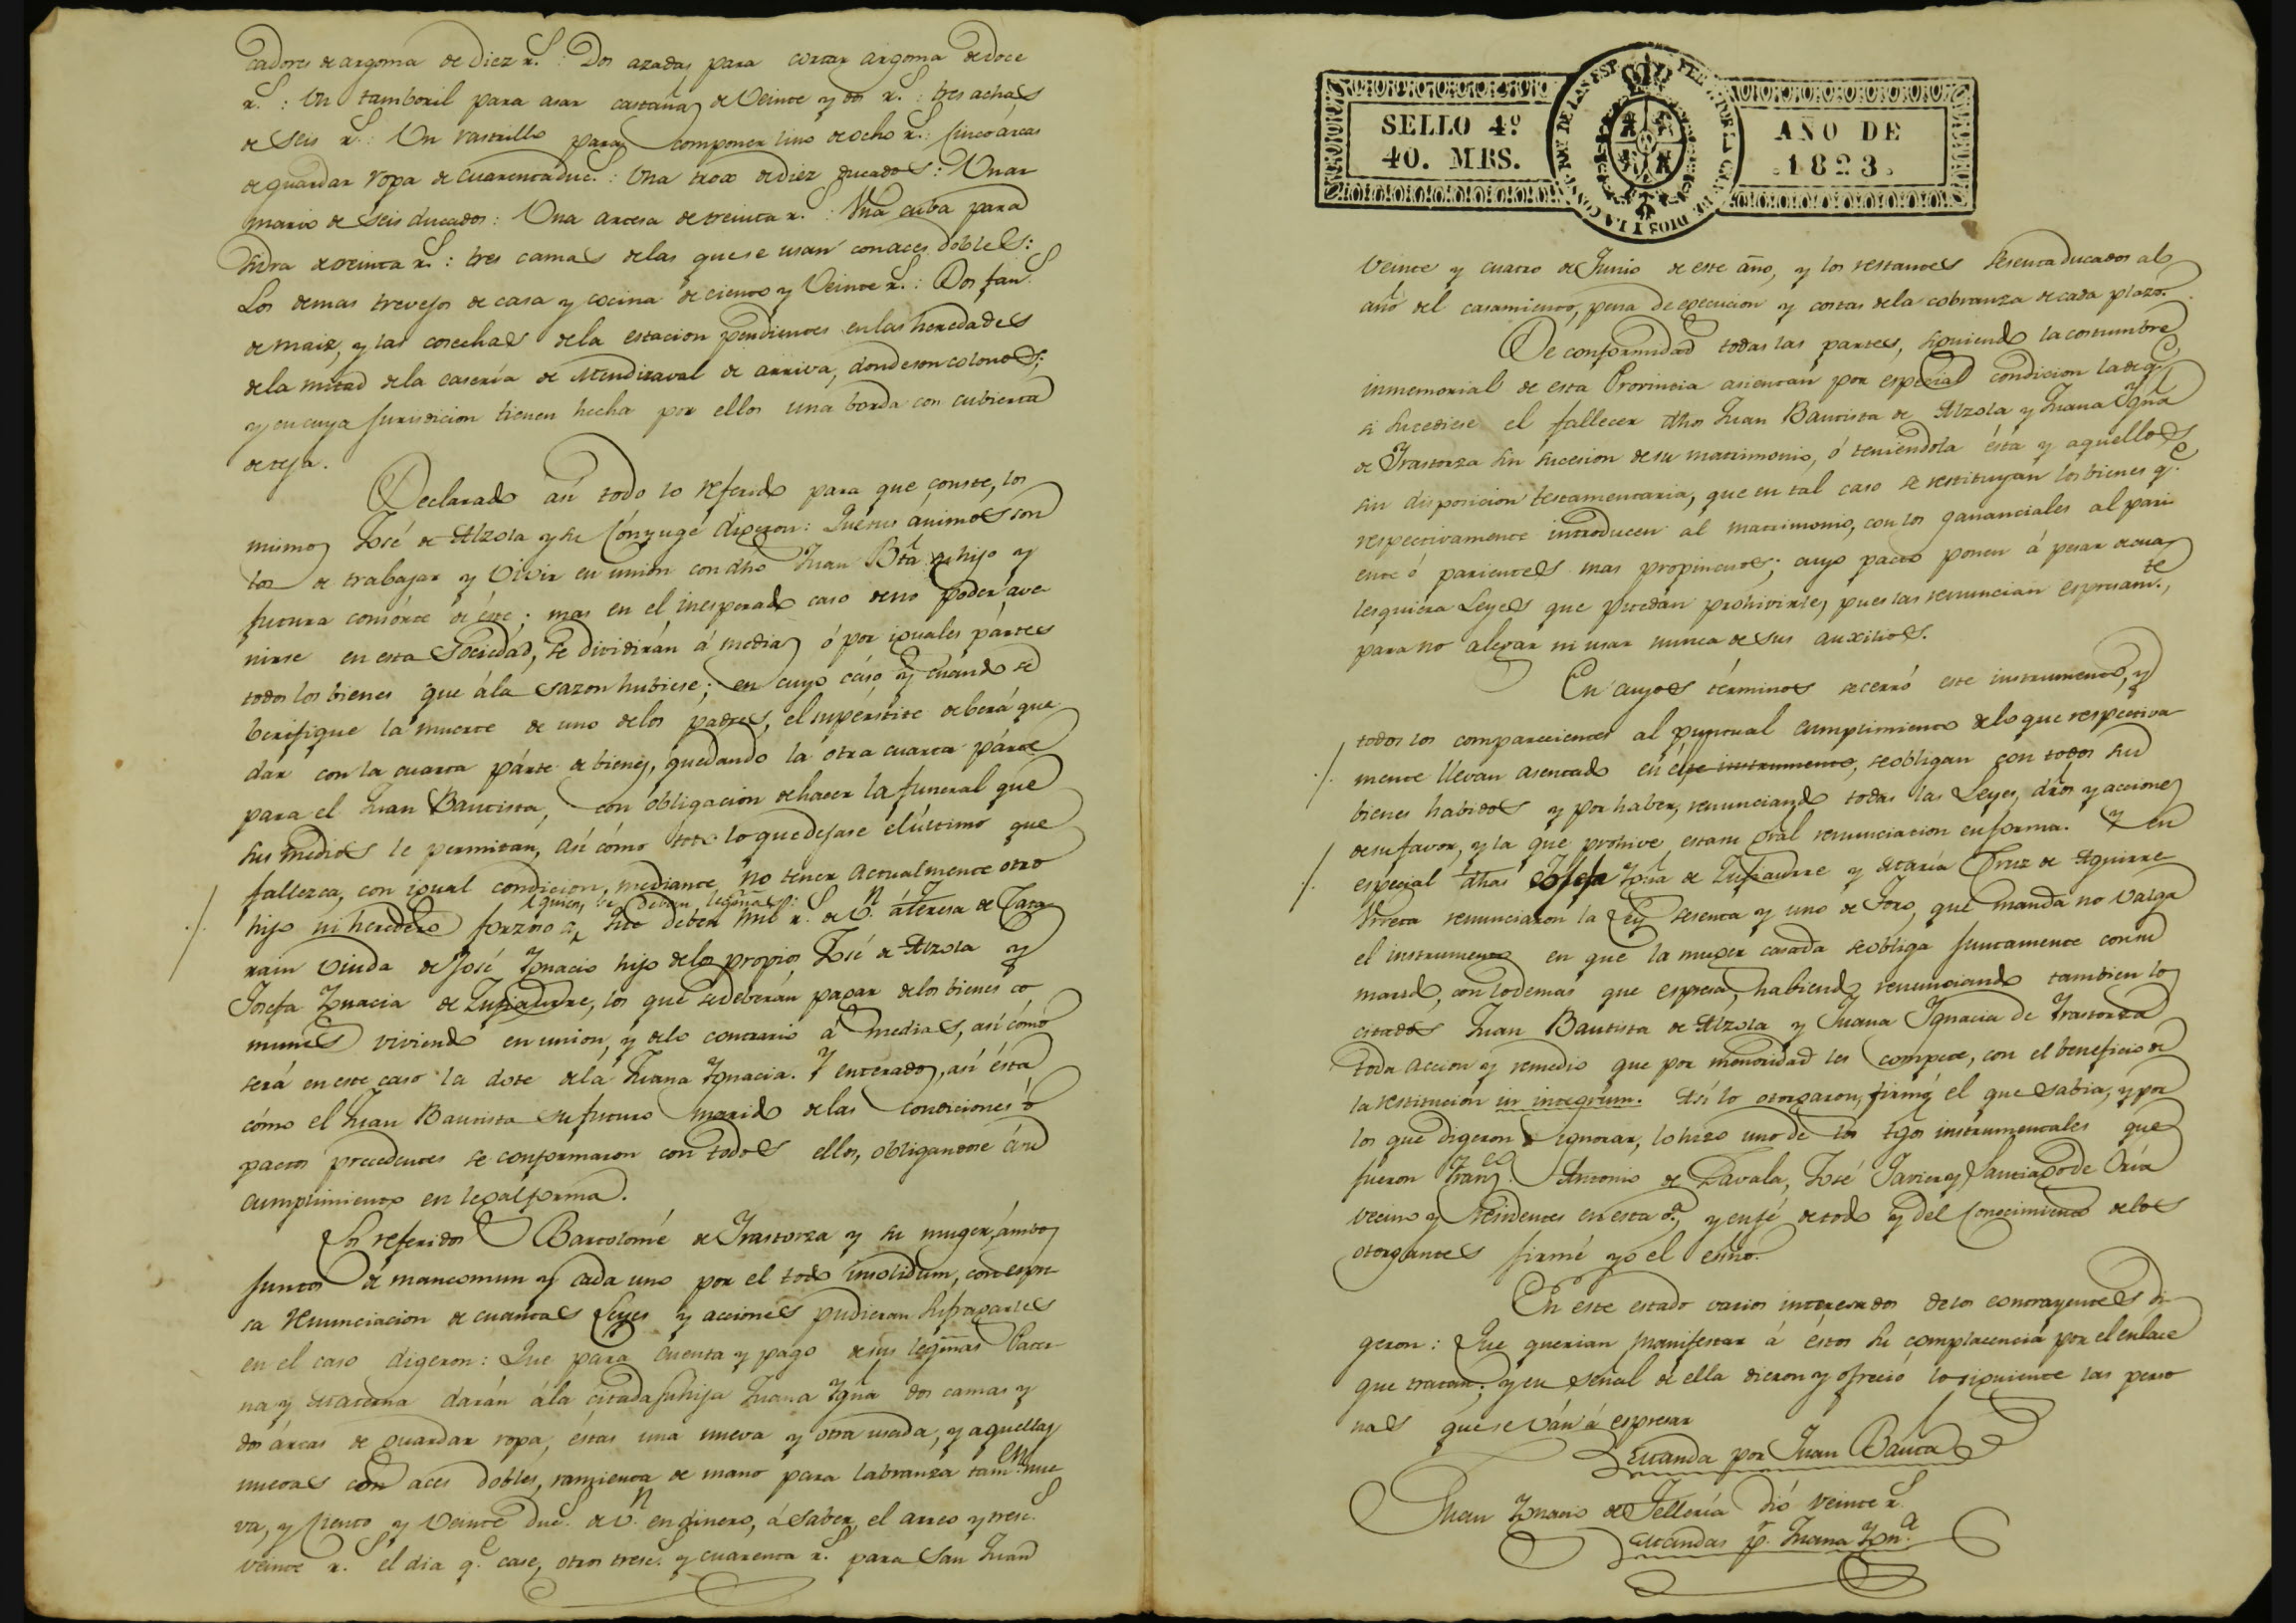 cadores de argoma de diez r.s: Dos azadas para cortar argoma de doce
r.s: Un tamboril para asar castañas de Veinte y dos r.s: tres achas
de seis r.s: Un rastrillo para componer lino de ocho r.s: cinco árcas
de guardar ropa de cuarenta duc.s: Una trox de diez ducados: Un ar
mario de seis ducados: Una artesa de treinta r.s: Una cuba para
sidra de treinta r.s: tres camas de las que se usan con aces dobles:
Los demas trevejos de casa y cocina de ciento y Veinte r.s: Dos fan.s
de maiz, y las cosechas de la estacion pendientes en las heredades
de la mitad de la casería de Mendizaval de arriva, donde son colonos;
y en cuya jurisdicion tienen hecha por ellos una borda con cubierta
de teja.
Declarado así todo lo referido para que conste, los
mismos José de Alzola y su Cónyuge digeron: Que sus ánimos son
los de trabajar y Vivir en unión con dho Juan Bta su hijo y
futura consórte de éste; mas en el inesperado caso de no poder ave
nirse en esta Sociedad, se dividirán á medias ó por iguales pártes
todos los bienes que á la sazon hubiese; en cuyo cáso y cuando se
berifique la muerte de uno de los padres, el supérstite deberá que
dar con la cuarta párte de bienes, quedando la otra cuarta párte
para el Juan Bautista, con obligacion de hacer la funeral que
sus medios le permitan, así cómo todo lo que dejase el último que
fallezca, con igual condicion, mediante no tener actualmente otro
á quien se deben legitimas:
hijo ni heredero forzoso, se le deben mil r.s de v.n á Teresa de Zara
rain viuda de José Ignacio hijo de los propios José de Alzola y
Josefa Ignacia de Zufiaurre, los que se deberán pagar de los bienes co
munes viviendo en union, y de lo contrario á medias, así cómo
será en este caso la dote de la Juana Ignacia. Y enterados, así ésta
cómo el Juan Bautista su futuro marido de las condiciones ó
pactos precedentes se conformaron con todos ellos, obligandose á su
cumplimiento en legal forma.
Los referidos Bartolomé de Irastorza y su muger, ámbos
juntos de mancomun y cada uno por el todo insolidum, con espre
sa renunciacion de cuantas Leyes y acciones pudieran sufragarles
en el caso digeron: Que para cuenta y pago de sus legítimas Pater
na y Materna darán á la citada su hija Juana Ign.a dos camas y
dos árcas de guardar ropa, éstas una nueva y otra usada, y aquellas
nuevas con aces dobles, ramienta de mano para labranza tam.en nue
va, y ciento y Veinte duc.s de v.n en dinero, á saber, el arreo y tresc.s
veinte r.s el dia q.e case, otros tresc.s y cuarenta r.s para San Juan
SELLO 4º
40. MRS.
AÑO DE
1823.
Veinte y cuatro de Junio de este año, y los restantes sesenta ducados al
año del casamiento, pena de egecucion y costas de la cobranza de cada plazo.
De conformidad todas las partes, siguiendo la costumbre
inmemorial de esta Provincia asientan por especial condicion la de q.e
si sucediese el fallecer dhos Juan Bautista de Alzola y Juana Ign.a
de Irastorza sin sucesion de su matrimonio, ó teniendola ésta y aquellos
sin disposicion testamentaria, que en tal caso se restituyan los bienes q.e
respectivamente introducen al matrimonio, con los gananciales al pari
ente ó parientes mas propincuos; cuyo pacto ponen á pesar de cua
lesquiera Leyes que puedan prohivirle, pues las renuncian espresam.te,
para no alegar ni usar nunca de sus auxilios.
En cuyos términos se cerró este instrumento, y
todos los comparecientes al puntual cumplimiento de lo que respectiva
mente llevan asentado en este instrumento, se obligan con todos sus
bienes habidos y por haber, renunciando todas las Leyes, dros y acciones
de su favor, y la que prohive esta gral renunciacion en forma. Y en
especial dhas Josefa Ign.a de Zufiaurre y María Cruz de Aguirre
Urreta renunciaron la Ley sesenta y uno de Toro, que manda no valga
el instrumento en que la muger casada se obliga juntamente con su
marido, con lo demas que espresa, habiendo renunciando tambien los
citados Juan Bautista de Alzola y Juana Ignacia de Irastorza
toda accion y remedio que por menoridad les compete, con el beneficio de
la restitucion in integrum. Así lo otorgaron, firmó el que sabia, y por
los que digeron ignorar, lo hizo uno de los tgos instrumentales que
fueron Fran.co Antonio de Zavala, José Javier y Santiago de Oria
vecinos y residentes en esta v.a y en fé de todo y del conocimiento de los
otorgantes firmé yo el esno.
En este estado varios interesados de los contrayentes di
geron: Que querian manifestar á éstos su complacencia por el enlace
que tratan; y en señal de ella dieron y ofreció lo siguiente las perso
nas que se ván á espresar
Manda por Juan Bauta
Juan Ignacio de Tellería dió veinte r.s
Mandas p.r Juana Ign.a